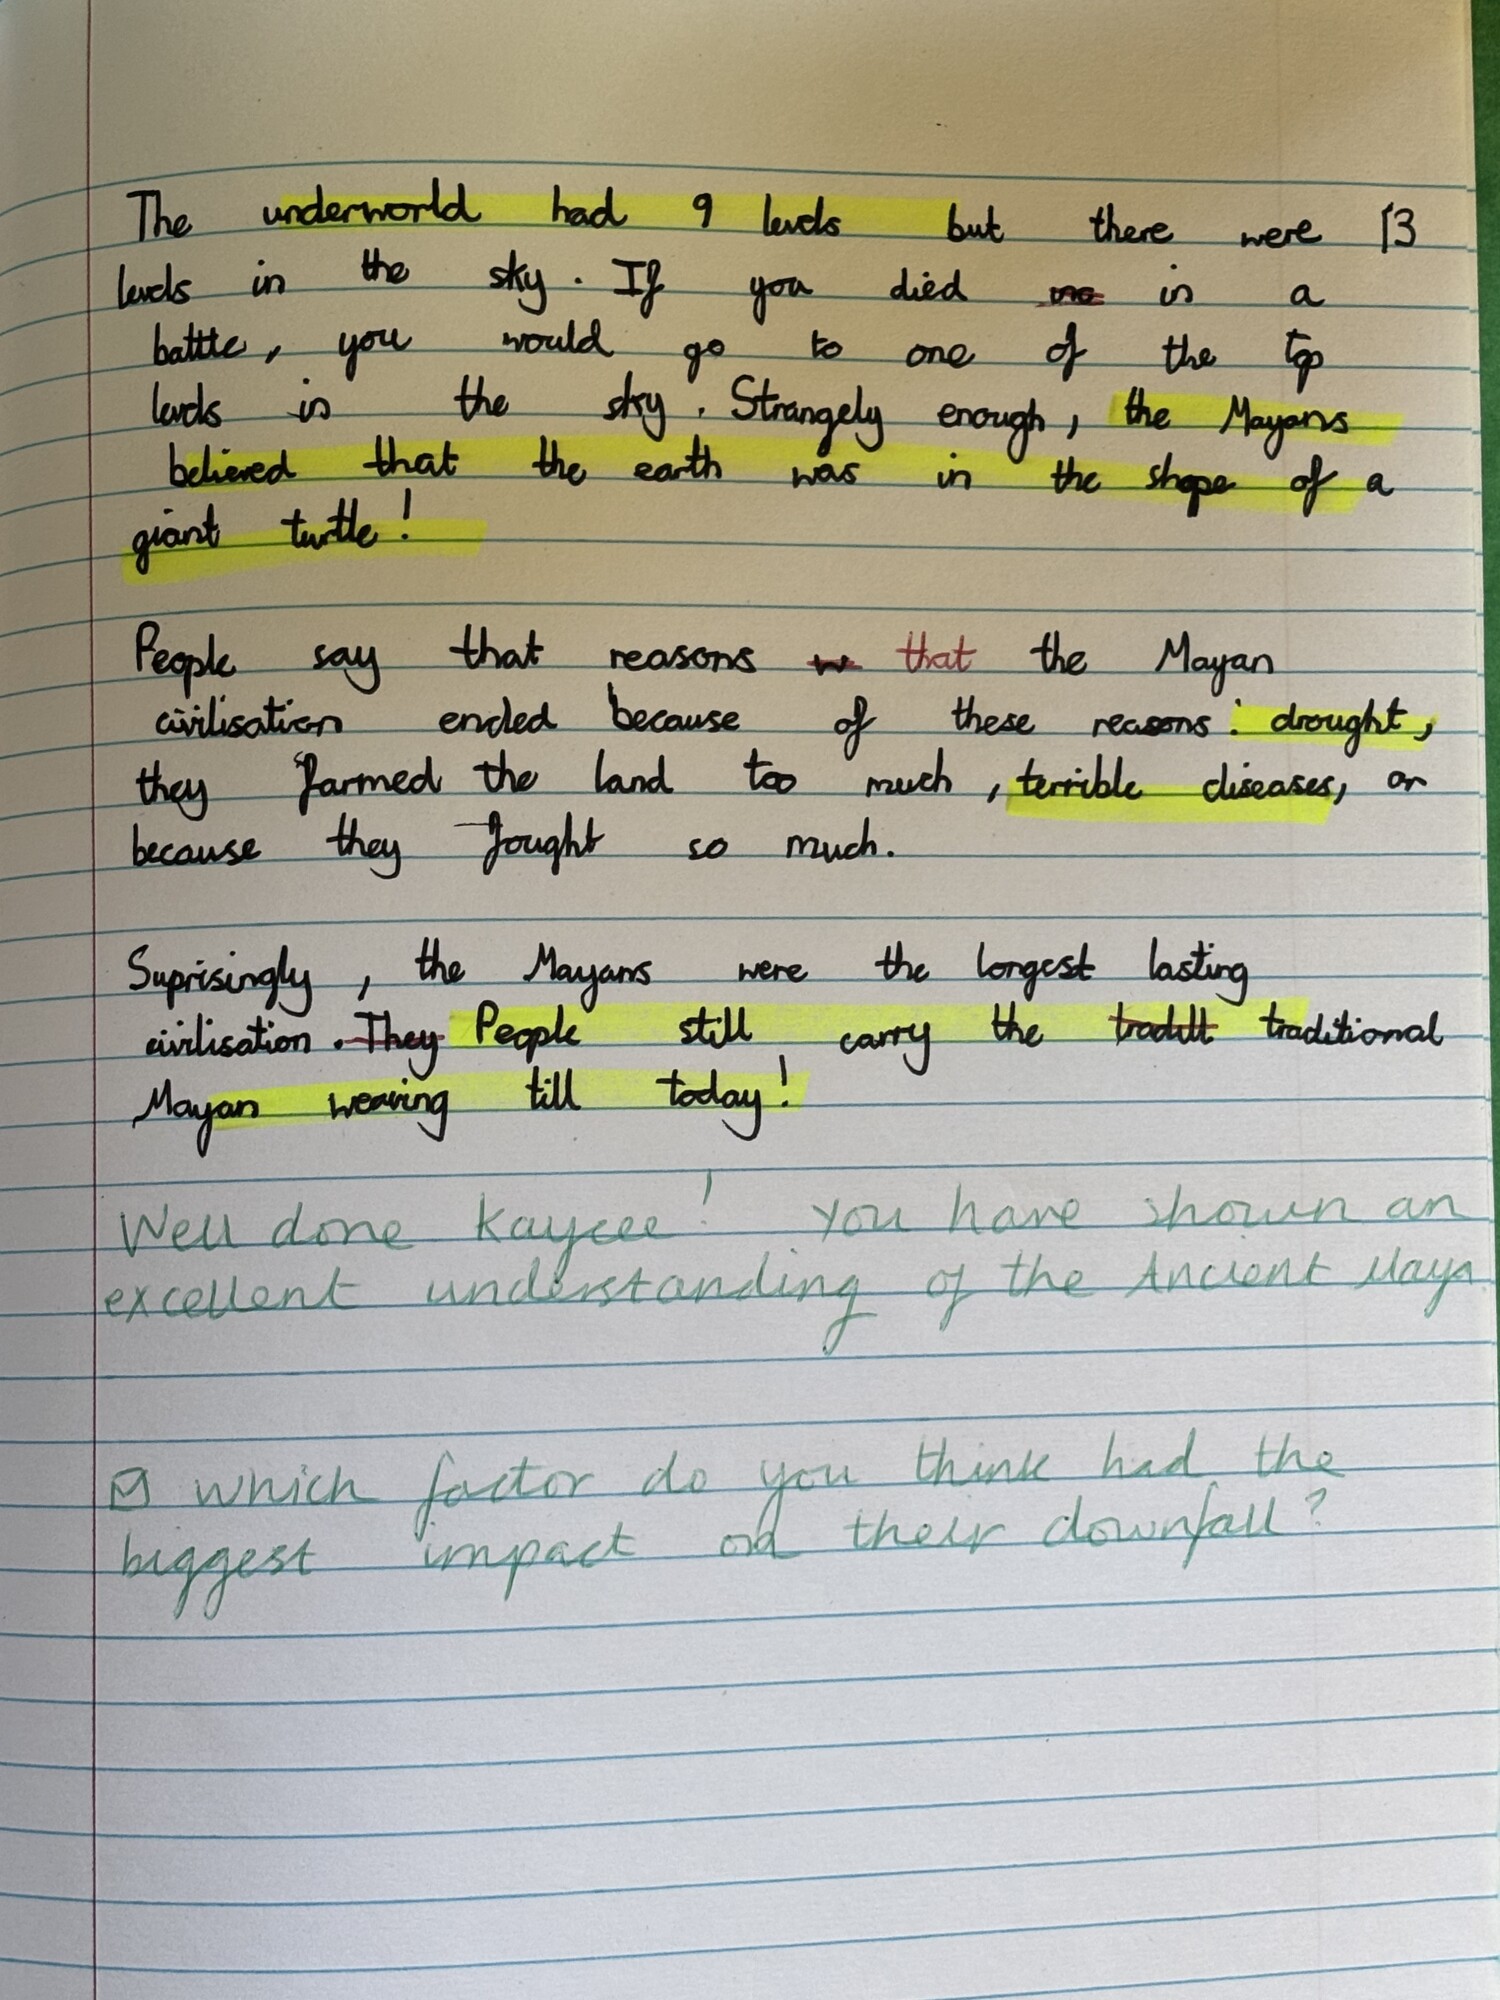 The underworld had 9 levels but there were 13
levels in the sky. If you died in a
battle, you would go to one of the top
levels in the sky. Strangely enough, the Mayans
believed that the earth was in the shape of a
giant turtle!
People say that reasons that the Mayan
civilisation ended because of these reasons: drought,
they farmed the land too much, terrible diseases, or
because they fought so much.
Suprisingly, the Mayans were the longest lasting
civilisation. They People still carry the tradit traditional
Mayan weaving till today!
Well done Kaycee! You have shown an
excellent understanding of the Ancient Maya
which factor do you think had the
biggest impact on their downfall?